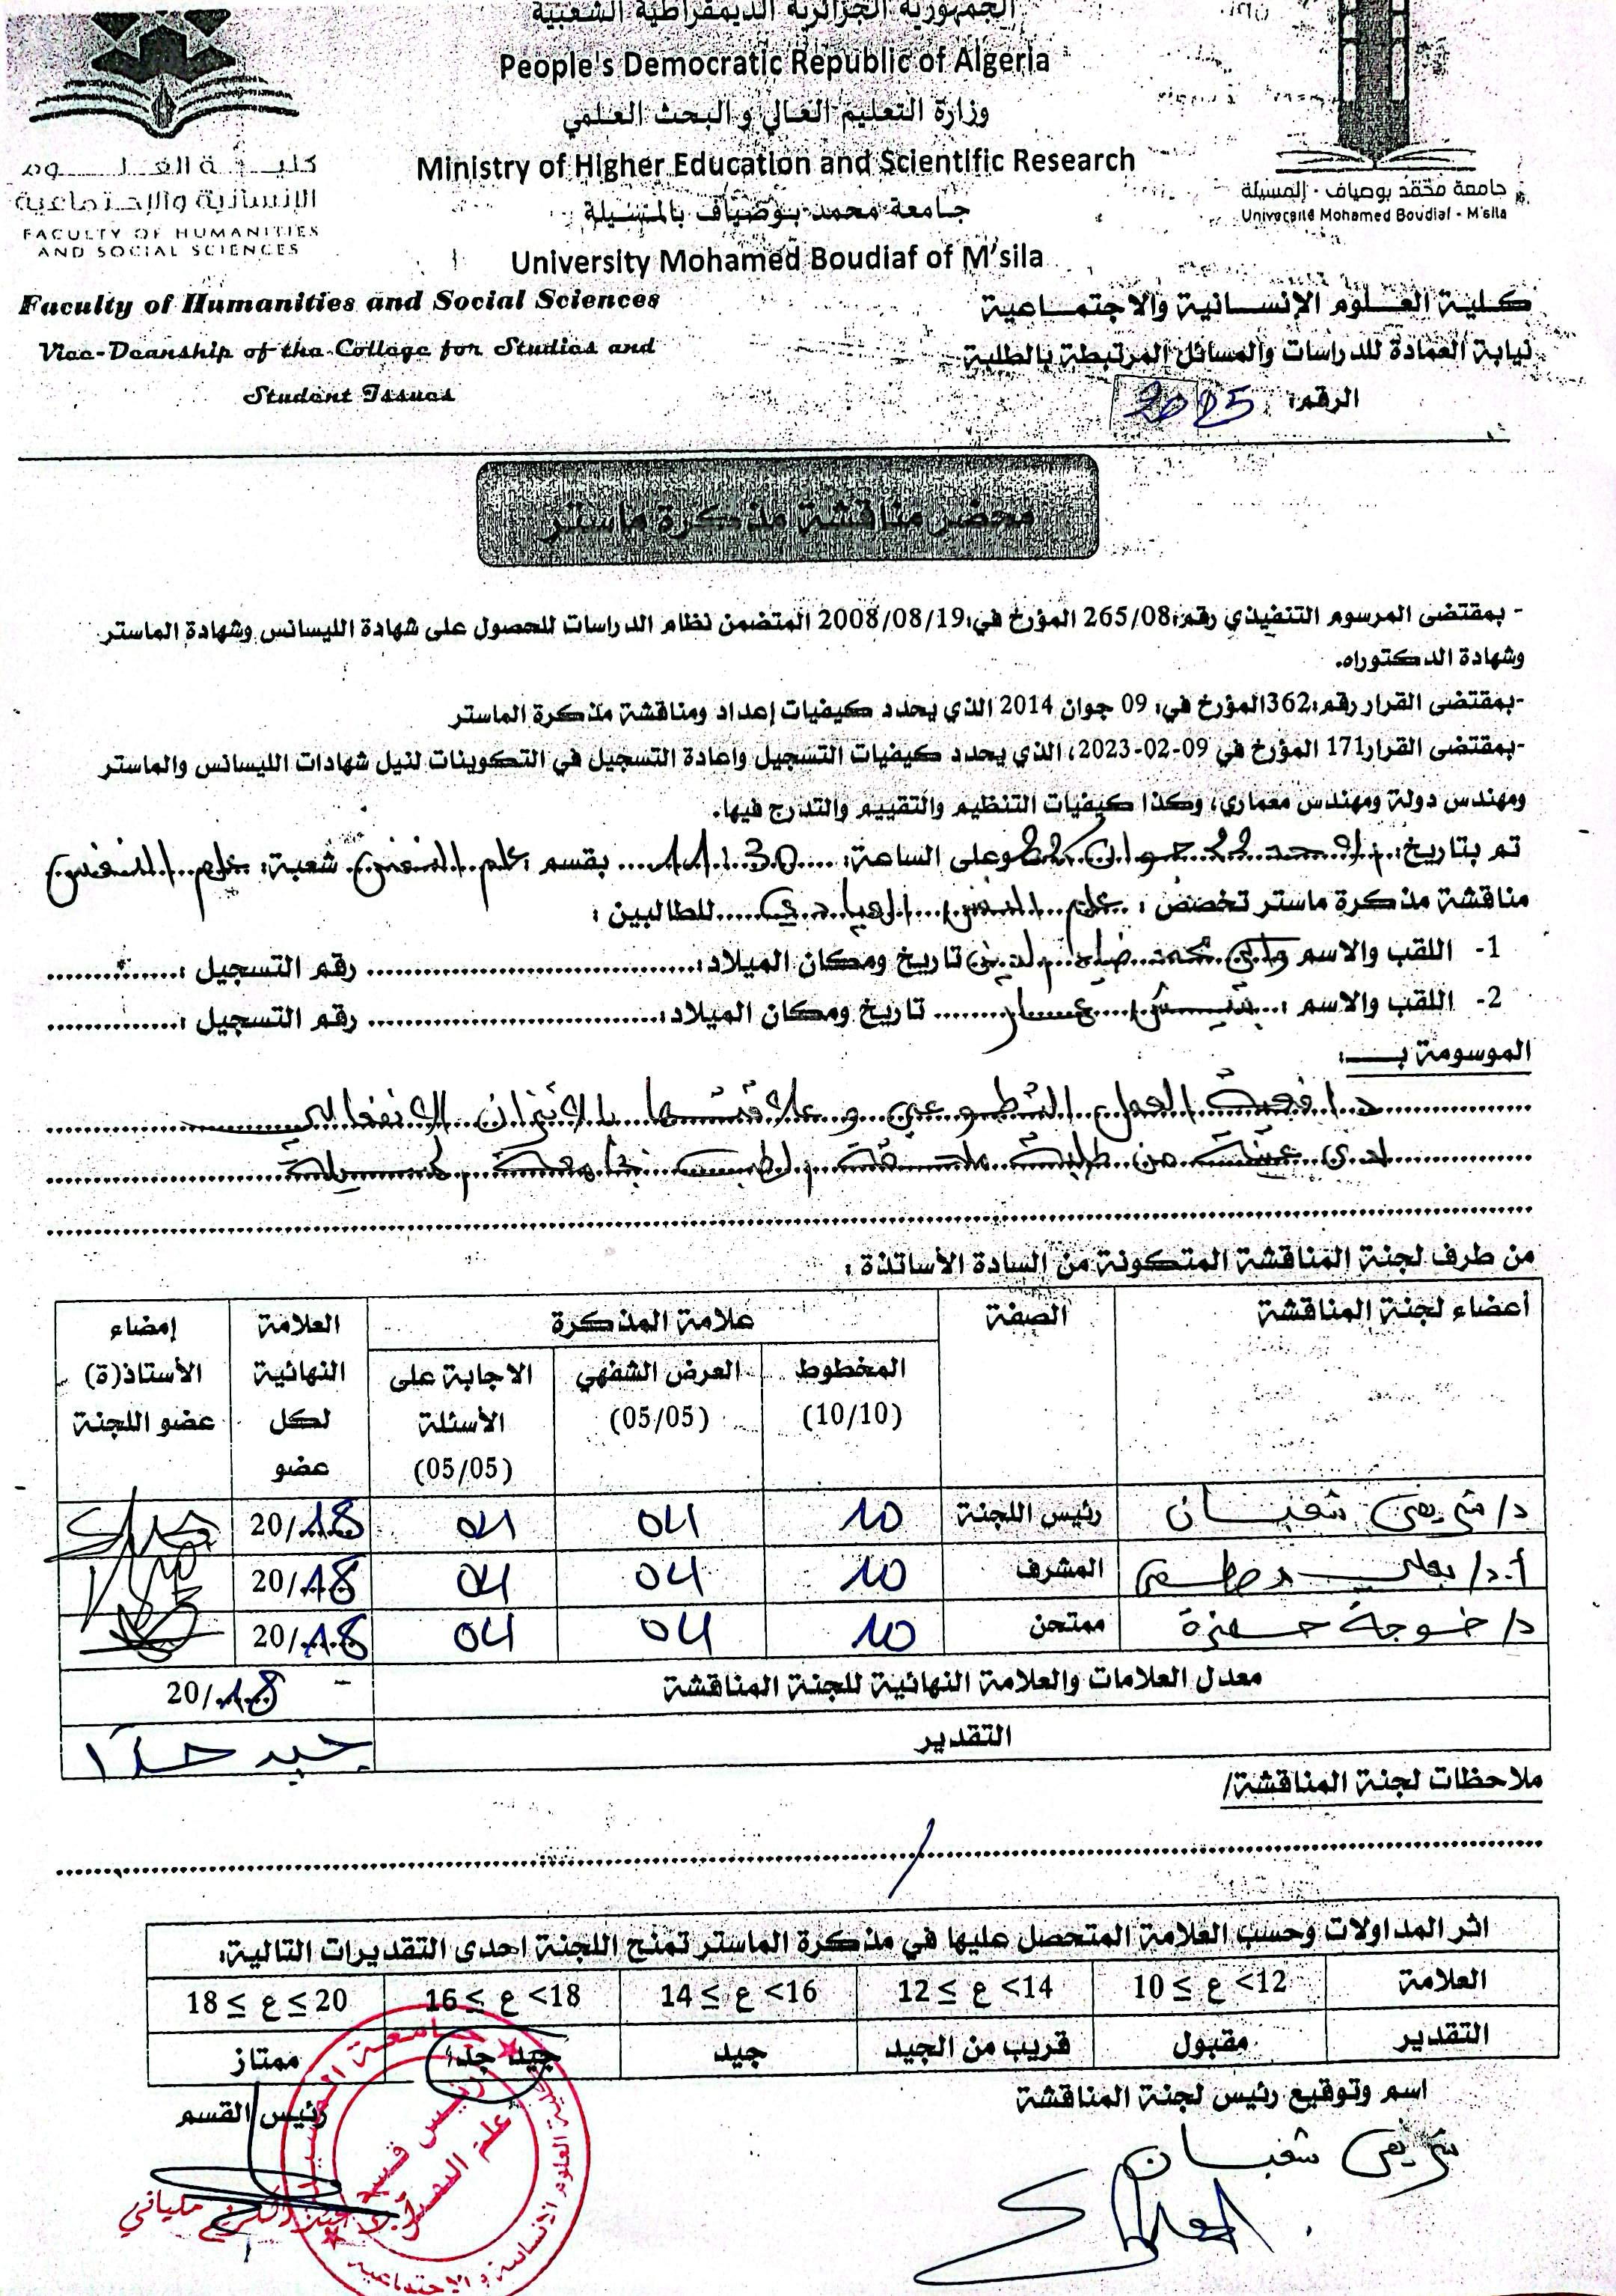 الجمهورية الجزائرية الديمقراطية الشعبية
People's Democratic Republic of Algeria
وزارة التعليم العالي و البحث العلمي
Ministry of Higher Education and Scientific Research
جامعة محمد بوضياف بالمسيلة
University Mohamed Boudiaf of M'sila
كليـــة العلـــوم
الإنسانية والاجتماعية
FACULTY OF HUMANITIES
AND SOCIAL SCIENCES
جامعة محمد بوضياف - المسيلة
Université Mohamed Boudiaf - M'sila
Faculty of Humanities and Social Sciences
Vice-Deanship of the College for Studies and
Student Issues
كلية العلوم الإنسانية والاجتماعية
نيابة العمادة للدراسات والمسائل المرتبطة بالطلبة
الرقم: 2025
محضر مناقشة مذكرة ماستر
- بمقتضى المرسوم التنفيذي رقم:265/08 المؤرخ في:2008/08/19 المتضمن نظام الدراسات للحصول على شهادة الليسانس وشهادة الماستر
وشهادة الدكتوراه.
-بمقتضى القرار رقم:362المؤرخ في: 09 جوان 2014 الذي يحدد كيفيات إعداد ومناقشة مذكرة الماستر
-بمقتضى القرار171 المؤرخ في 09-02-2023، الذي يحدد كيفيات التسجيل واعادة التسجيل في التكوينات لنيل شهادات الليسانس والماستر
ومهندس دولة ومهندس معماري، وكذا كيفيات التنظيم والتقييم والتدرج فيها.
تم بتاريخ: جوان وعلى الساعة: 11:30 بقسم :علم النفس شعبة: علم النفس
مناقشة مذكرة ماستر تخصص : علم النفس العيادي للطالبين :
1- اللقب والاسم محمد ضياء الدين تاريخ ومكان الميلاد: رقم التسجيل :
2- اللقب والاسم : عمار تاريخ ومكان الميلاد: رقم التسجيل :
الموسومة بـــ:
دافعية العمل التطوعي وعلاقتها بالاتزان الانفعالي
لدى عينة من طلبة ملحقة الطب بجامعة المسيلة
من طرف لجنة المناقشة المتكونة من السادة الأساتذة :
أعضاء لجنة المناقشة الصفة علامة المذكرة العلامة النهائية لكل عضو إمضاء الأستاذ(ة) عضو اللجنة
المخطوط (10/10) العرض الشفهي (05/05) الاجابة على الأسئلة (05/05)
د/ شريفي شعبان رئيس اللجنة 10 04 04 20/18
أ.د/ بعلي مصطفى المشرف 10 04 04 20/18
د/ خوجة حمزة ممتحن 10 04 04 20/18
معدل العلامات والعلامة النهائية للجنة المناقشة 20/18
التقدير جيد جدا
ملاحظات لجنة المناقشة/
/
اثر المداولات وحسب العلامة المتحصل عليها في مذكرة الماستر تمنح اللجنة احدى التقديرات التالية:
العلامة 12> ع ≥ 10 14> ع ≥ 12 16> ع ≥ 14 18> ع ≥ 16 20 ≥ ع ≥ 18
التقدير مقبول قريب من الجيد جيد جيد جدا ممتاز
اسم وتوقيع رئيس لجنة المناقشة
رئيس القسم
شريفي شعبان
رئيس قسم
علم النفس